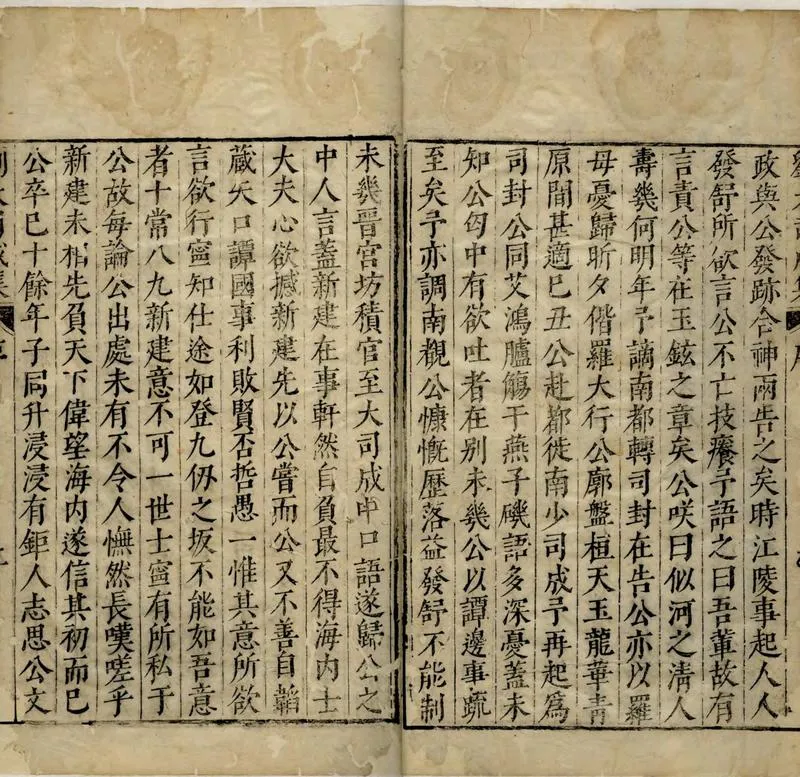 政與公發跡合神兩告之矣時江陵事起人人
發舒所欲言公不亡技癢予語之曰吾輩故有
言責公等在玉鉉之章矣公咲曰似河之清人
壽幾何明年予謫南都轉司封在告公亦以羅
母憂歸昕夕偕羅大行公廓盤桓天玉龍華青
原間甚適已丑公赴都徙南少司成予再起為
司封公同艾鴻臚觴于燕子磯語多深憂蓋未
知公匈中有欲吐者在別未幾公以譚邊事疏
至矣予亦調南觀公慷慨歷落益發舒不能制
未幾晉宮坊積官至大司成中口語遂歸公之
中人言蓋新建在事軒然自負最不得海內士
大夫心欲撼新建先以公嘗而公又不善自韜
蔵矢口譚國事利敗賢否哲愚一惟其意所欲
言欲行寧知仕途如登九仭之坂不能如吾意
者十常八九新建意不可一世士寧有所私于
公故每論公出處未有不令人憮然長嘆嗟乎
新建未相先負天下偉望海內遂信其初而已
公卒巳十餘年子同升浸浸有鉅人志思公文